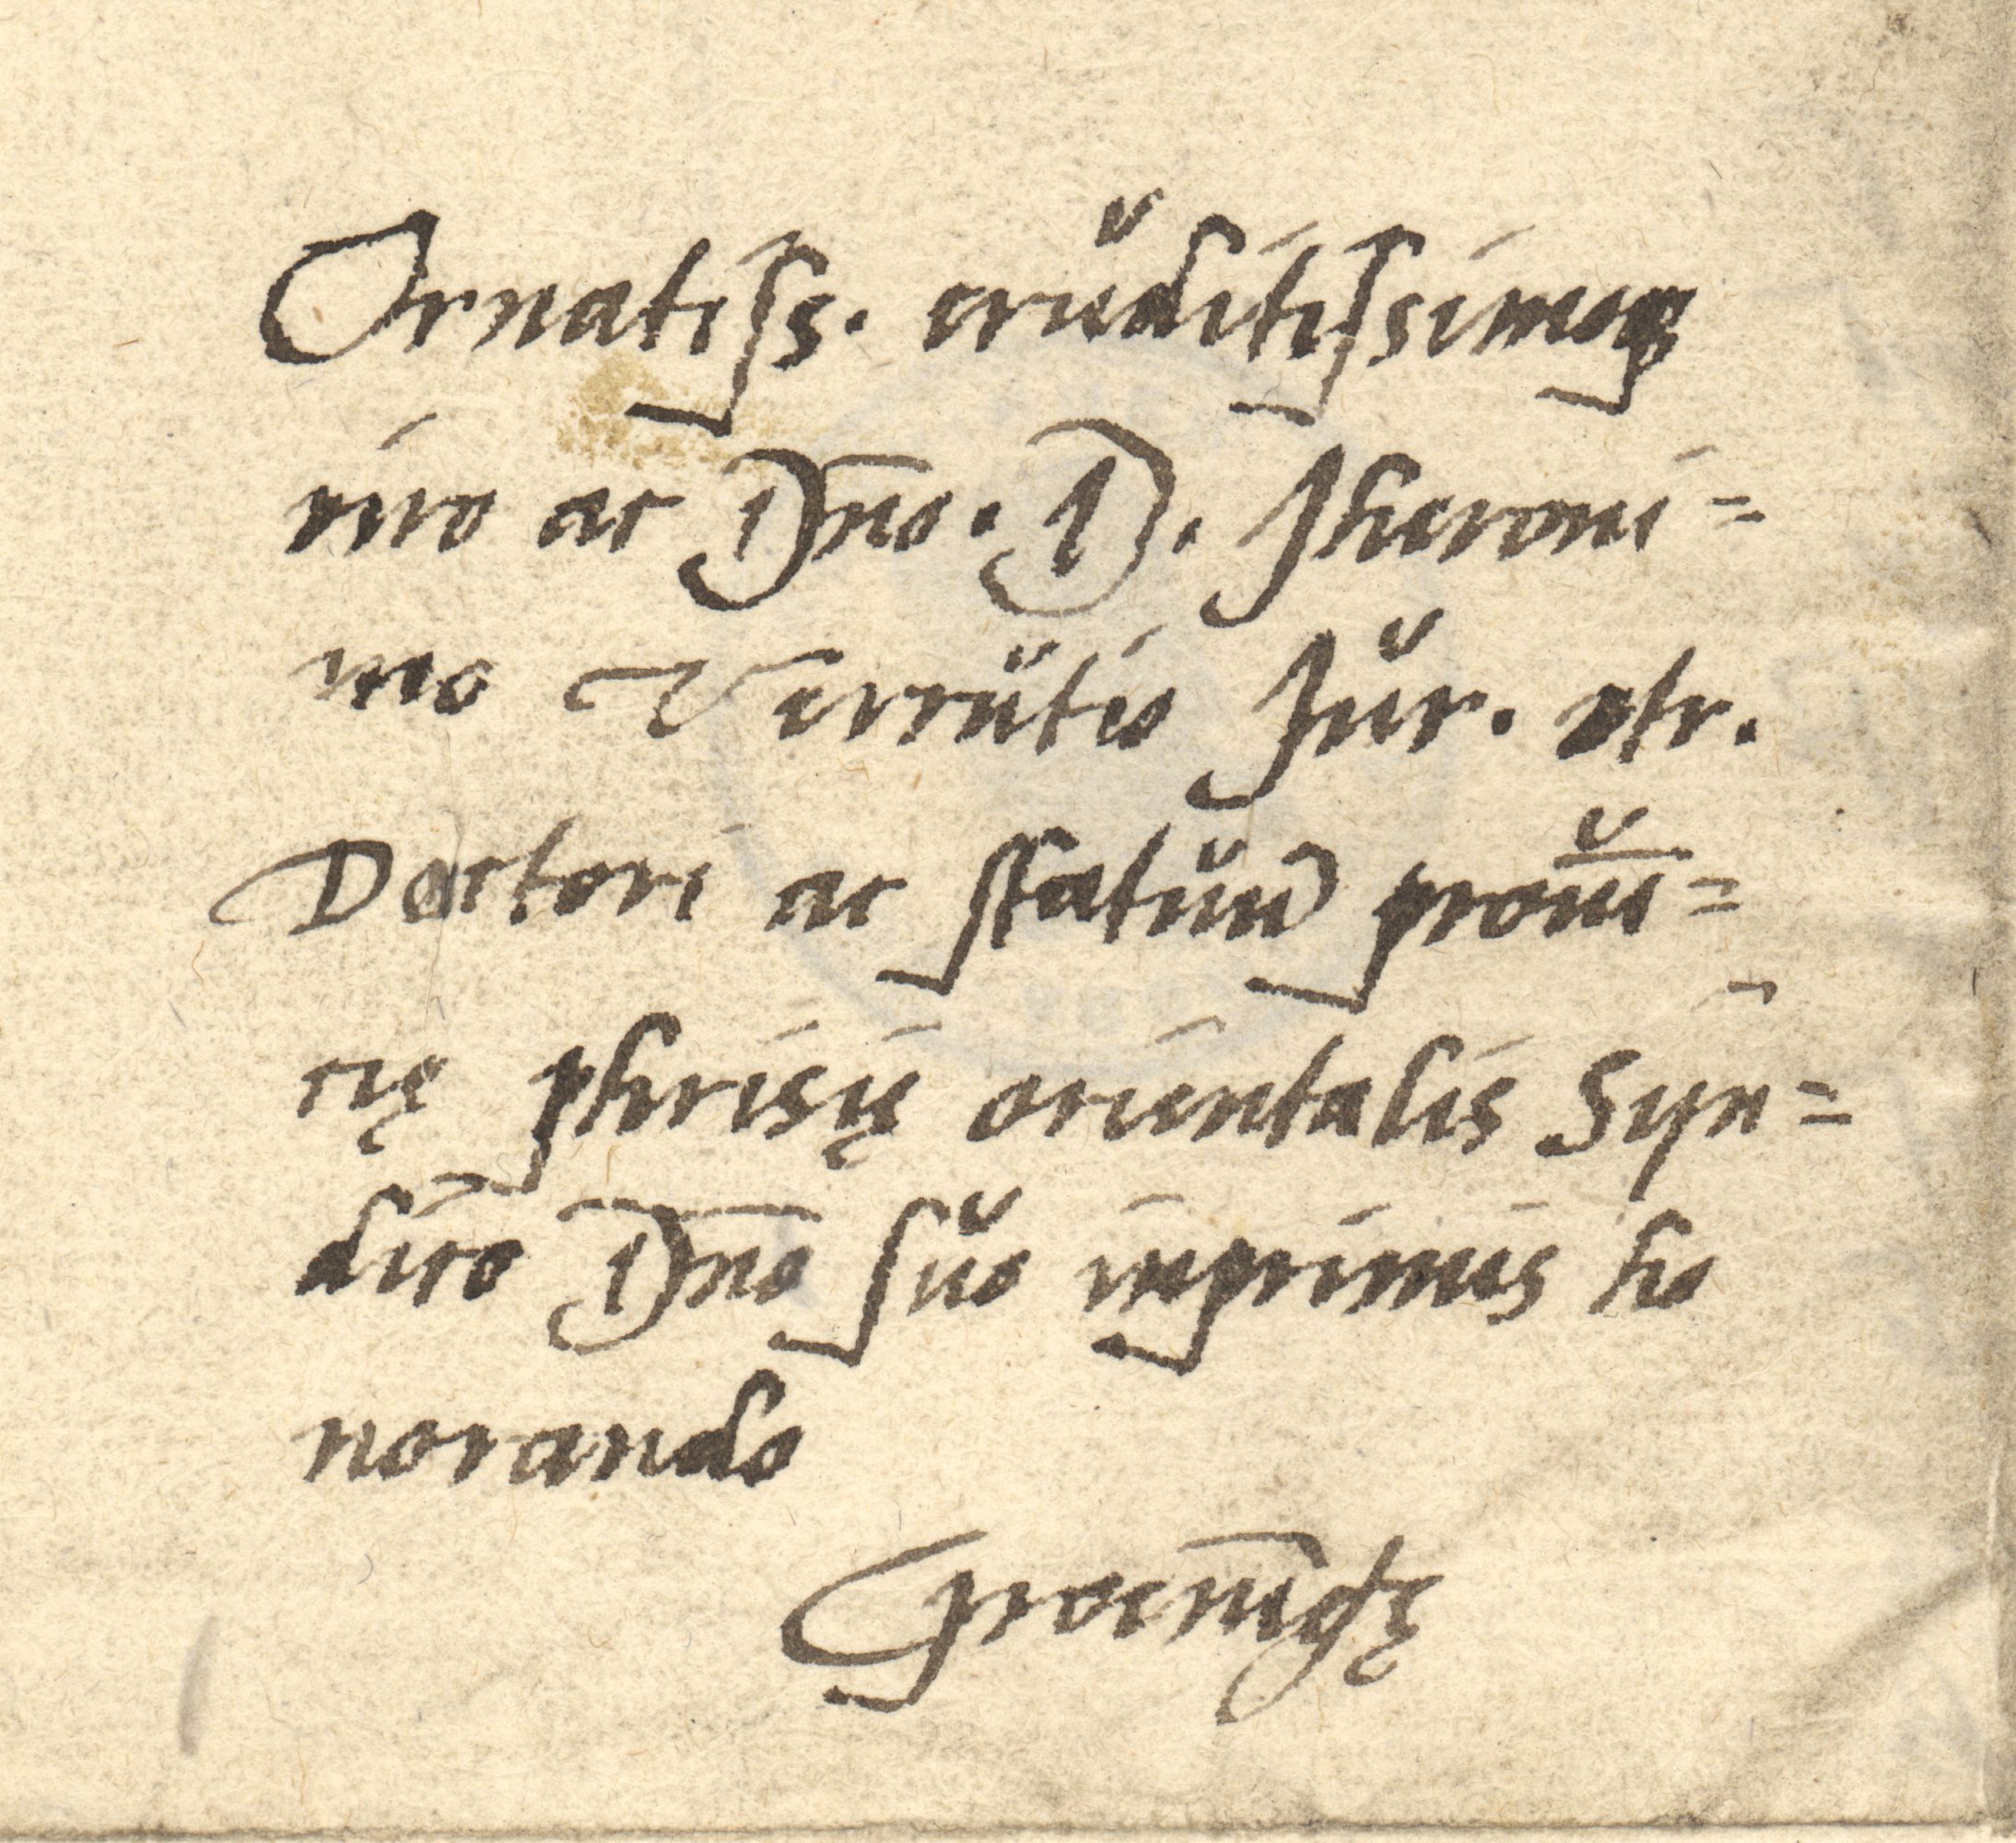 Ornatiss. eruditissimoq;
viro ac Dn̄o. D. Jheroni=
mo Verrutio Jur. utr.
Doctori ac statuū prouī=
cię phrisię orientalis Syn=
dico Dn̄o suo inprimis ho
norando
Groeīngę